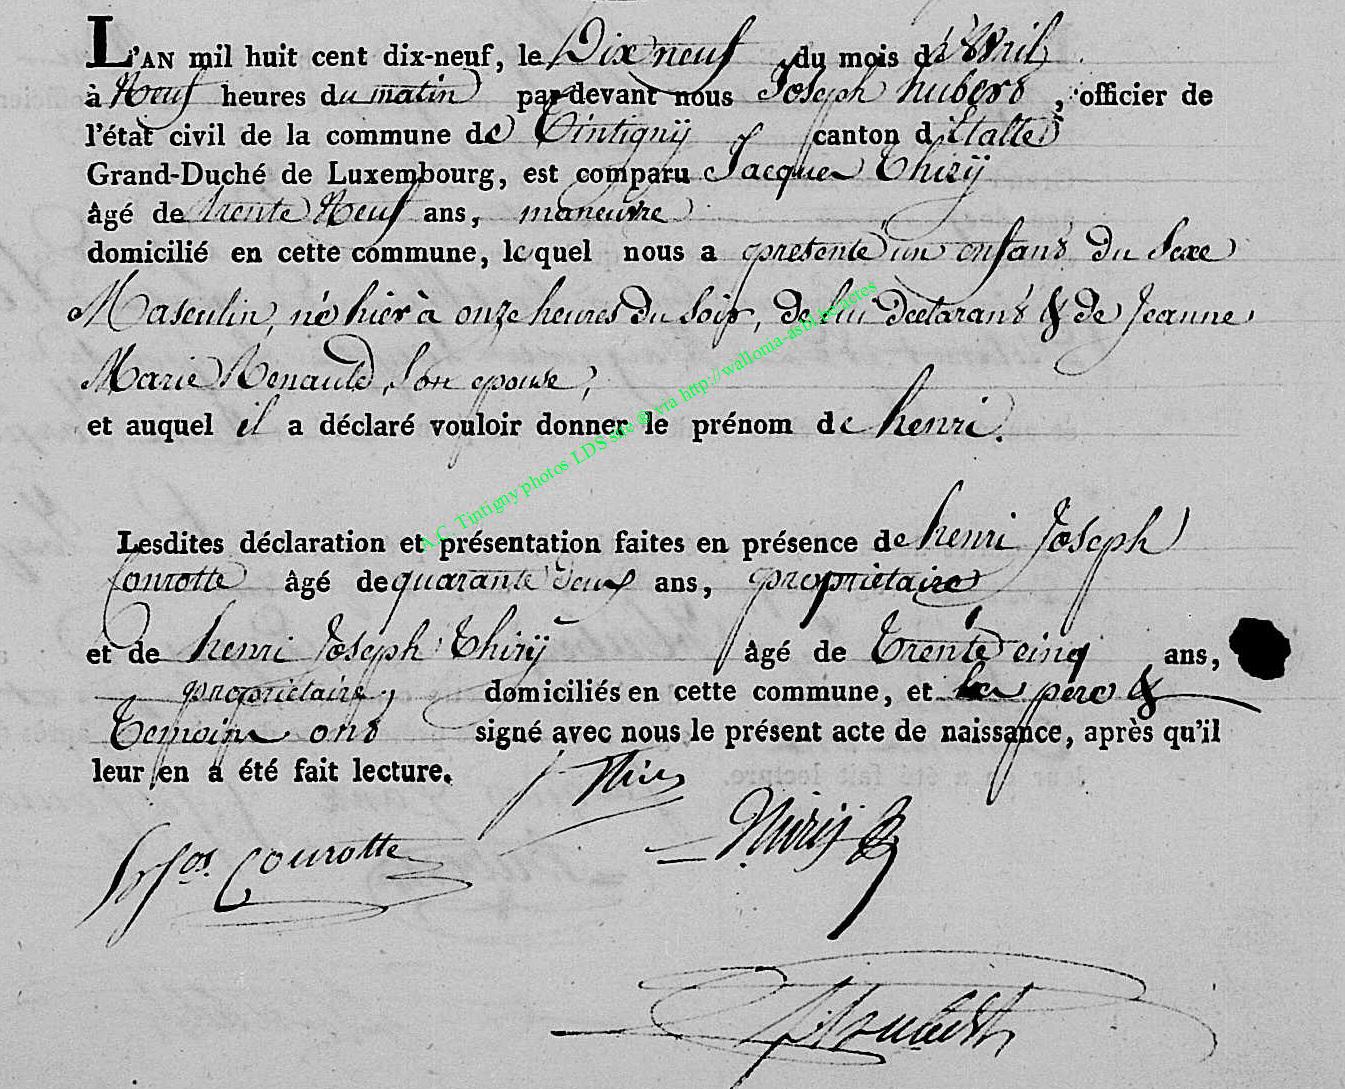 L'AN mil huit cent dix-neuf, le Dix neuf du mois d'avril
à Neuf heures du matin par devant nous Joseph hubert, officier de
l'état civil de la commune de Tintignÿ canton d'Etalle
Grand-Duché de Luxembourg, est comparu Jacques Thirÿ
âgé de trente Neuf ans, maneuvre
domicilié en cette commune, lequel nous a présenté un enfant du Sexe
Masculin, né hier à onze heures du Soir, de lui declarant & de Jeanne
Marie Renauld, Son epouse,
et auquel il a déclaré vouloir donner le prénom de henri.
A.C. Tintigny photos LDS site @ via http://wallonia-asbl.be/actes
Lesdites déclaration et présentation faites en présence de henri Joseph
Courotte âgé de quarante ans, propriétaire
et de henri Joseph Thirÿ âgé de Trente cinq ans,
propriétaire, domiciliés en cette commune, et les père &
Temoins ont signé avec nous le présent acte de naissance, après qu'il
leur en a été fait lecture.
Courotte
Thirÿ
Hubert